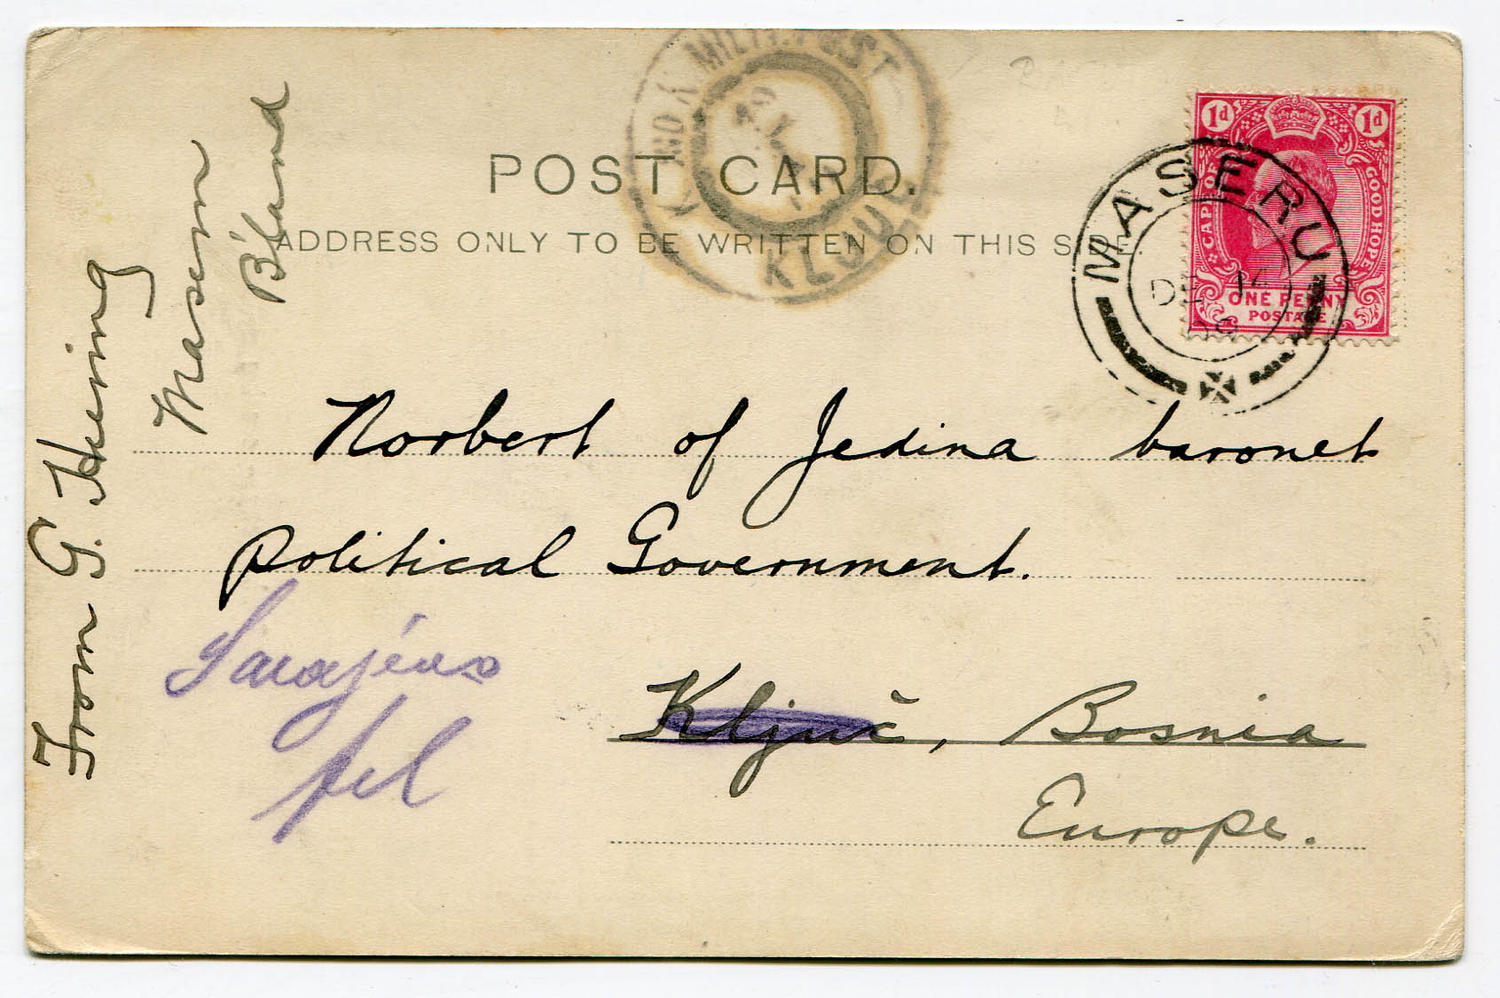 K. UND K. MILIT. POST
KLJUČ
POST CARD.
ADDRESS ONLY TO BE WRITTEN ON THIS SIDE.
1d 1d
CAPE OF GOOD HOPE
ONE PENNY
POSTAGE
MASERU
DE 14
09
From G. Hering
Maseru
B'land
Norbert of Jedina baronet
Political Government.
Sarajevo
Ključ, Bosnia
Europe.